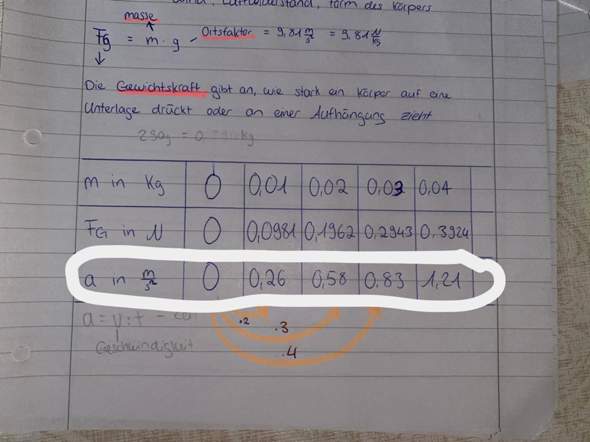 Luftwiderstand, Form des Körpers
masse
FG = m · g Ortsfaktor = 9,81 m/s² = 9,81 N/kg
Die Gewichtskraft gibt an, wie stark ein Körper auf eine
Unterlage drückt oder an einer Aufhängung zieht
250g = 0
m in Kg 0 0,01 0,02 0,03 0,04
FG in N 0 0,0981 0,1962 0,2943 0,3924
a in m/s² 0 0,26 0,58 0,83 1,21
a = v:t
·2 ·3
·4
Geschwindigkeit